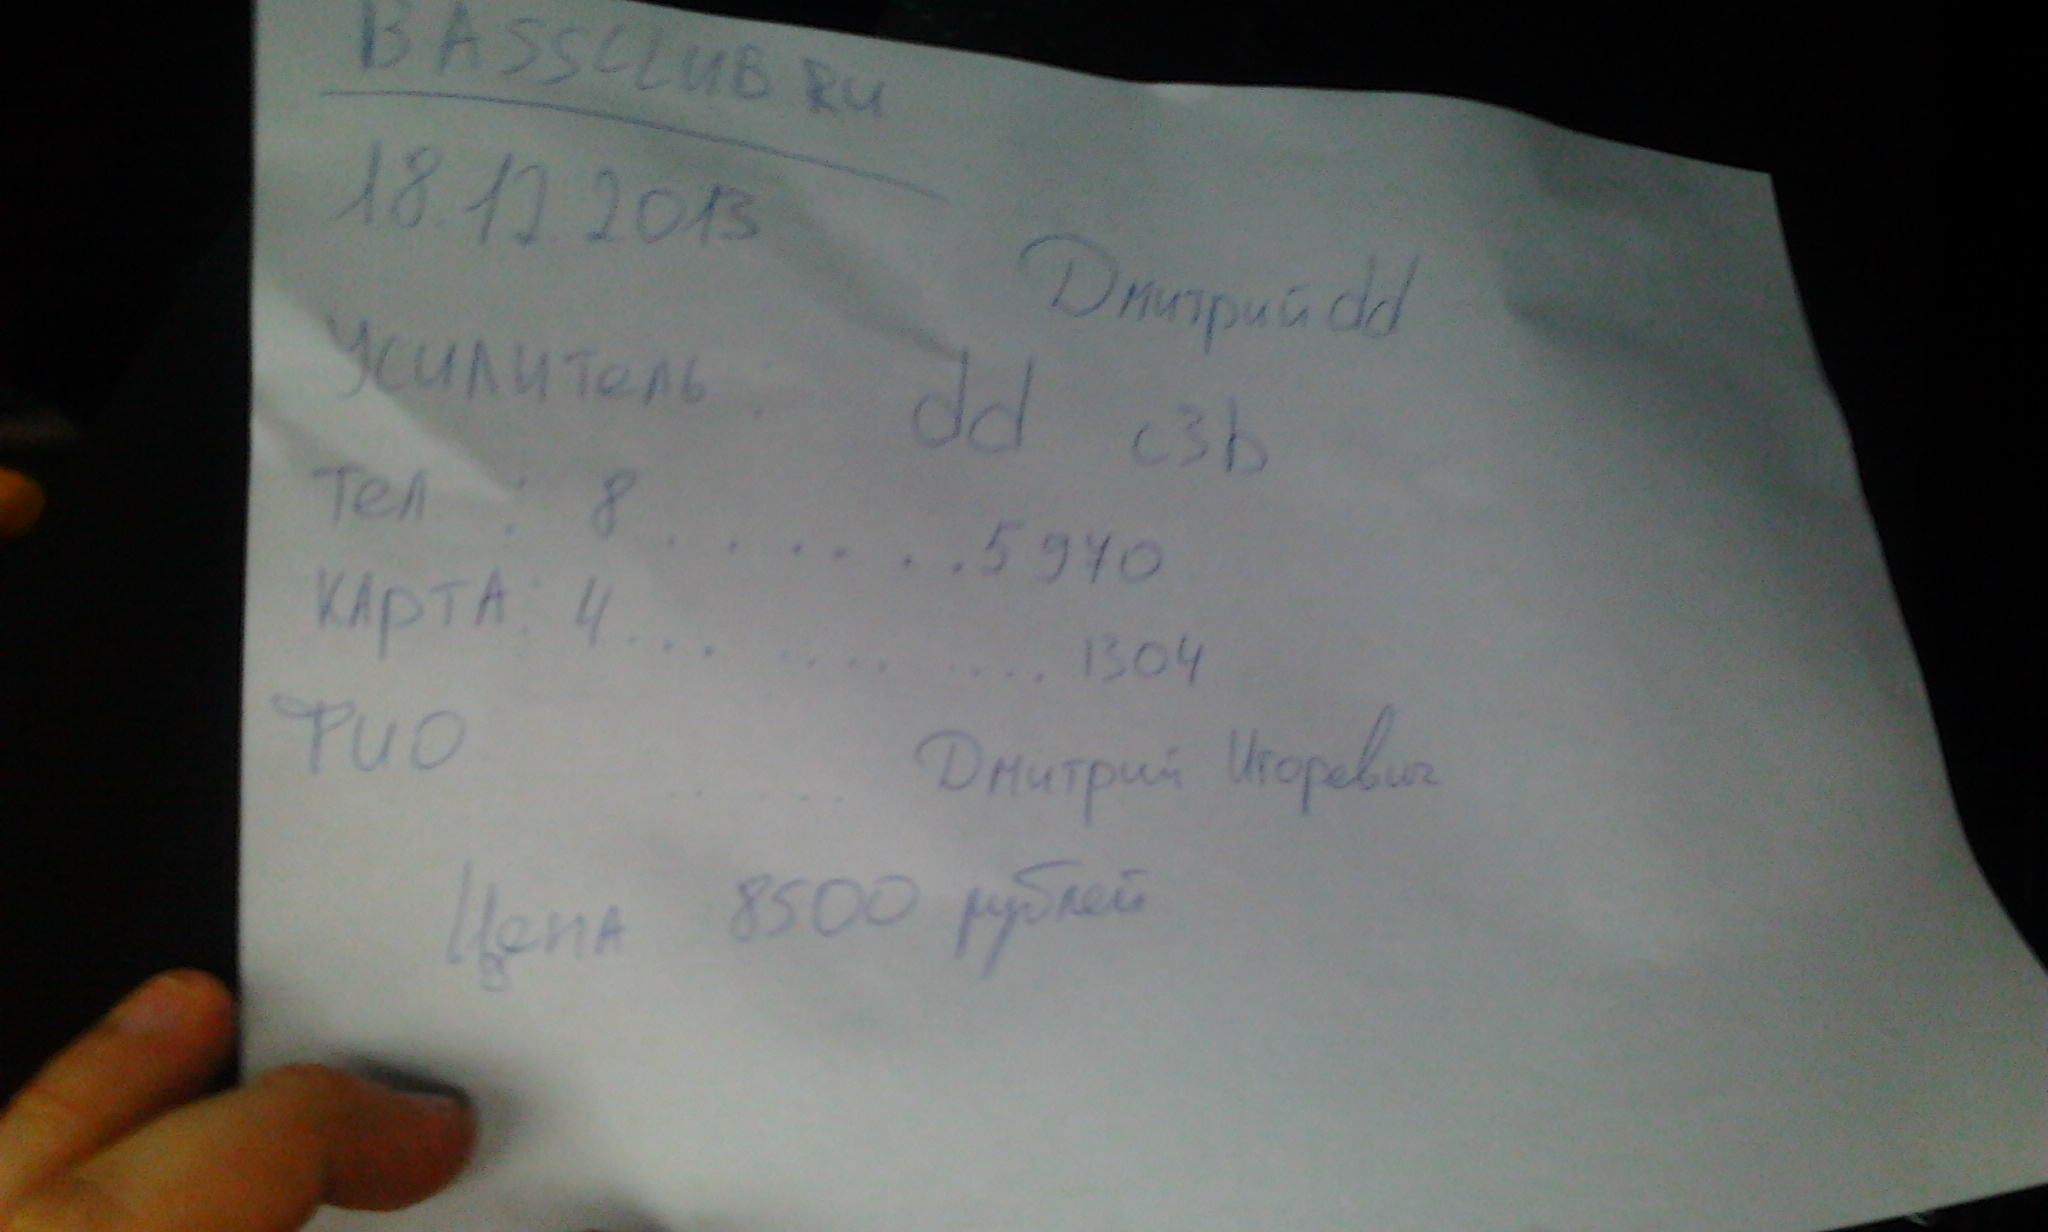 BASSCLUB RU
18.12.2013
Дмитрий dd
Усилитель: dd c3b
Тел : 8.......5970
КАРТА: 4... .... ....1304
ФИО ...... Дмитрий Игоревич
Цена 8500 рублей